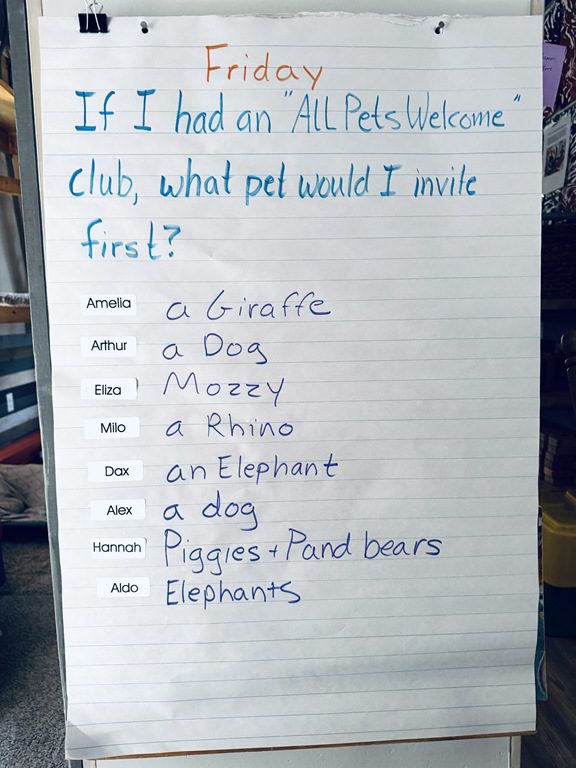 Friday
If I had an "All Pets Welcome"
club, what pet would I invite
first?
Amelia a Giraffe
Arthur a Dog
Eliza Mozzy
Milo a Rhino
Dax an Elephant
Alex a dog
Hannah Piggies + Pand bears
Aldo Elephants